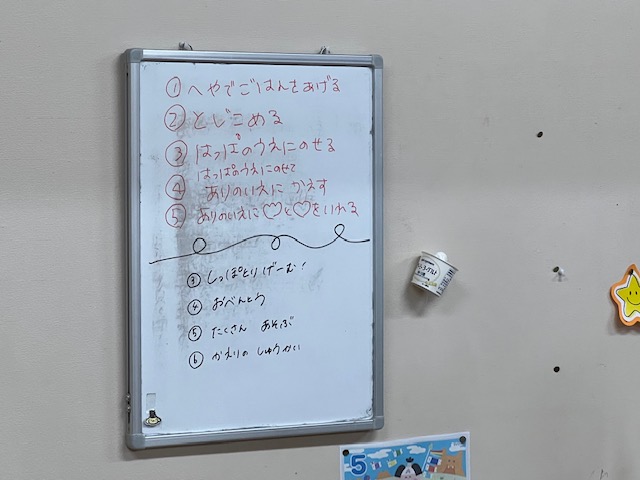 ① へやでごはんをあげる
② とじこめる
③ はっぱのうえにのせる
はっぱのうえにのせて
④ ありのいえに かえす
⑤ ありのいえに♡と♡をいれる
③ しっぽとりげーむ!
④ おべんとう
⑤ たくさん あそぶ
⑥ かえりの しゅうかい
5